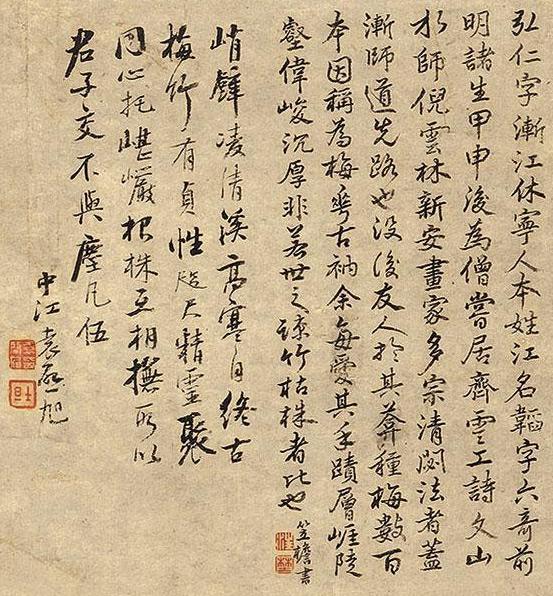 弘仁字漸江休寧人本姓江名韜字六奇前
明諸生甲申後為僧嘗居齊雲工詩文山
水師倪雲林新安畫家多宗清閟法者蓋
漸師道先路也沒後友人於其葬種梅數百
本因稱為梅華古衲余每愛其手蹟層崖陡
壑偉峻沉厚非若世之疎竹枯株者比也
笠檐書
峭壁凌清溪高寒自終古
梅竹有貞性咫尺精靈聚
同心托堪巖根株互相撫所以
君子交不與塵凡伍
中江袁啟旭